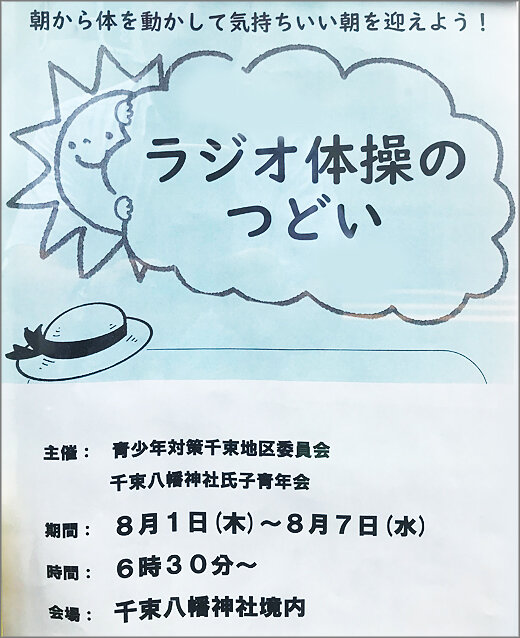 朝から体を動かして気持ちいい朝を迎えよう！
ラジオ体操の
つどい
主催： 青少年対策千束地区委員会
千束八幡神社氏子青年会
期間： 8月1日(木)～8月7日(水)
時間： 6時30分～
会場： 千束八幡神社境内